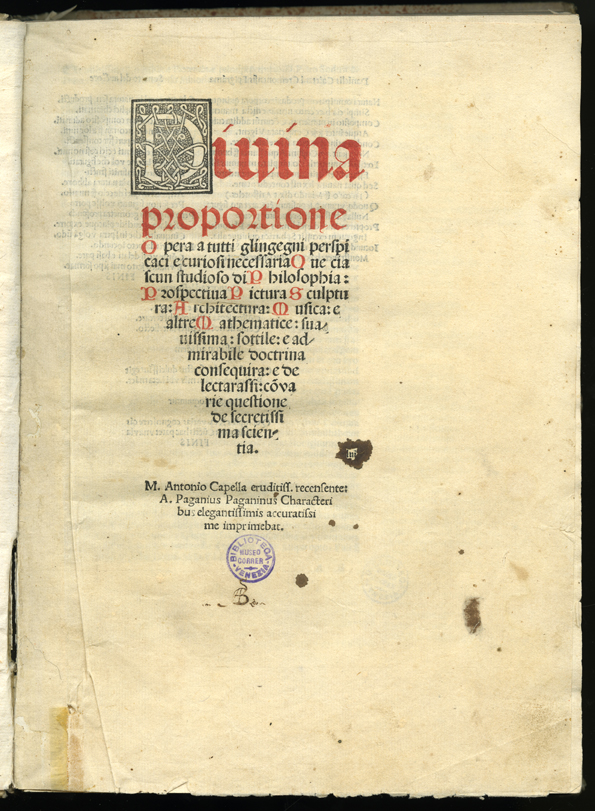 Diuina
proportione
Opera a tutti glingegni perspi
caci e curiosi necessaria Que cia
scun studioso di Philosophia:
Prospectiua Pictura Sculptu
ra: Architectura: Musica: e
altre Mathematice: sua/
uissima: sottile: e ad/
mirabile doctrina
consequira: e de
lectarassi: cõ va
rie questione
de secretissi
ma scien/
tia.
M. Antonio Capella eruditiss. recensente:
A. Paganius Paganinus Characteri
bus elegantissimis accuratissi
me imprimebat.
BIBLIOTECA
MUSEO
CORRER
VENEZIA